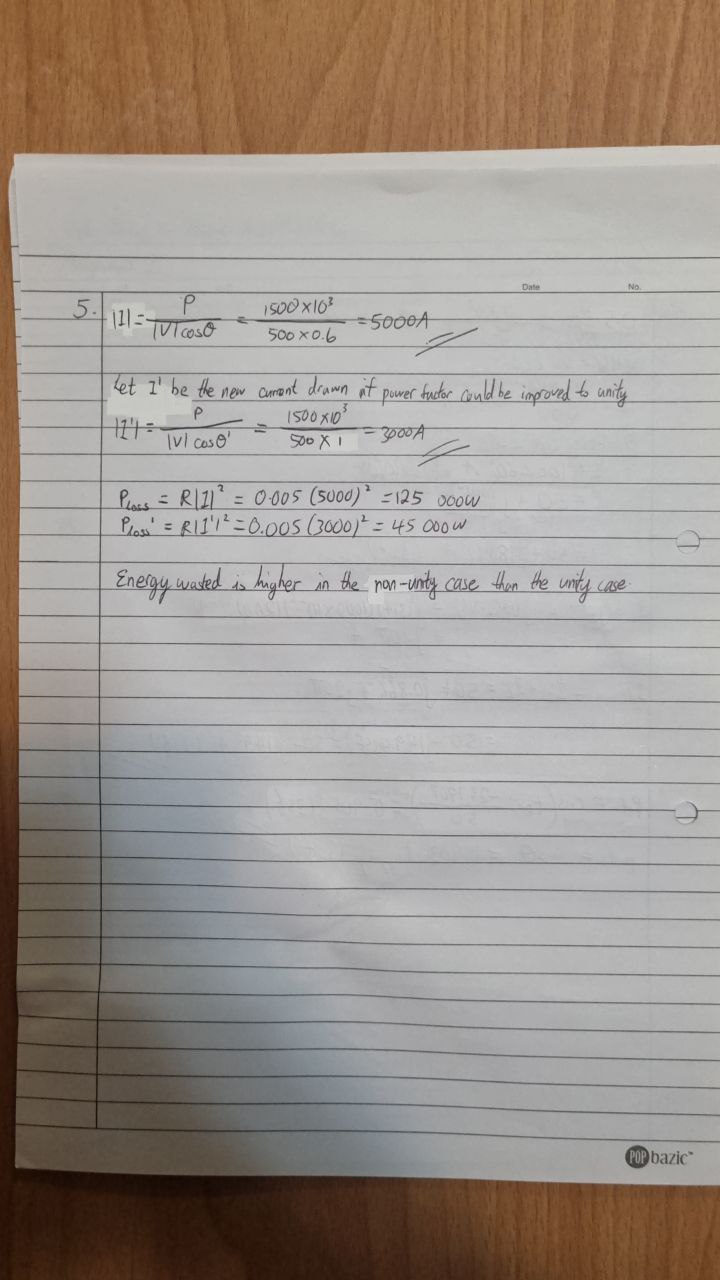 Date No.
5. |I| = P / |V| cosθ = 1500×10³ / 500×0.6 = 5000A
Let I' be the new current drawn if power factor could be improved to unity
|I'| = P / |V| cosθ' = 1500×10³ / 500×1 = 3000A
PLoss = R|I|² = 0.005 (5000)² = 125 000W
PLoss' = R|I'|² = 0.005 (3000)² = 45 000W
Energy wasted is higher in the non-unity case than the unity case.
POP bazic™